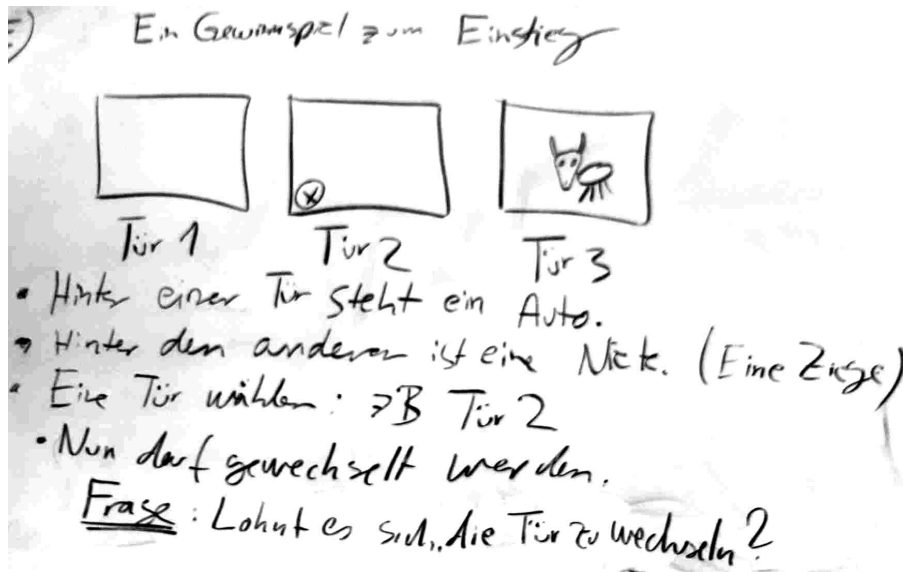 Ein Gewinnspiel zum Einstieg
Tür 1 Tür 2 Tür 3
• Hinter einer Tür steht ein Auto.
• Hinter den anderen ist eine Niete. (Eine Ziege)
• Eine Tür wählen: zB Tür 2
• Nun darf gewechselt werden.
Frage: Lohnt es sich, die Tür zu wechseln?